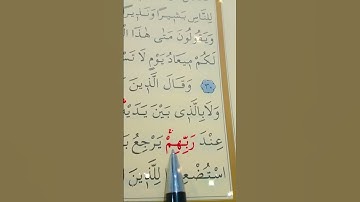 لِلنَّاسِ بَشٖيرًا وَنَذٖيرًا
وَيَقُولُونَ مَتٰى هٰذَا
لَكُمْ مٖيعَادُ يَوْمٍ لَا
٣٠ وَقَالَ الَّذٖينَ
وَلَا بِالَّذٖى بَيْنَ يَدَيْهِ
عِنْدَ رَبِّهِمْ يَرْجِعُ
لِلَّذٖينَ